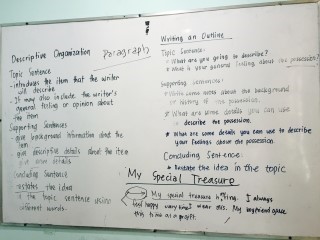 Descriptive Organization Paragraph
Topic Sentence
- introduces the item that the writer
will describe
- It may also include the writer's
general feeling or opinion about
the item
Supporting Sentences
- give background information about the
item
- give descriptive details about the item
- give more details
Concluding Sentence
- restates the idea
in the topic sentence using
different words.
Writing an Outline
Topic Sentence:
* What are you going to describe?
* What is your general feeling about the possession?
Supporting Sentences:
* Write some notes about the background
or history of the possession.
* What are some details you can use
to describe the possession.
* What are some details you can use to describe
your feelings about the possession
Concluding Sentence:
* Restate the idea in the topic
My Special Treasure
My special treasure is ring. I always
feel happy very time I wear this. My boyfriend gave
this to me as a gift.